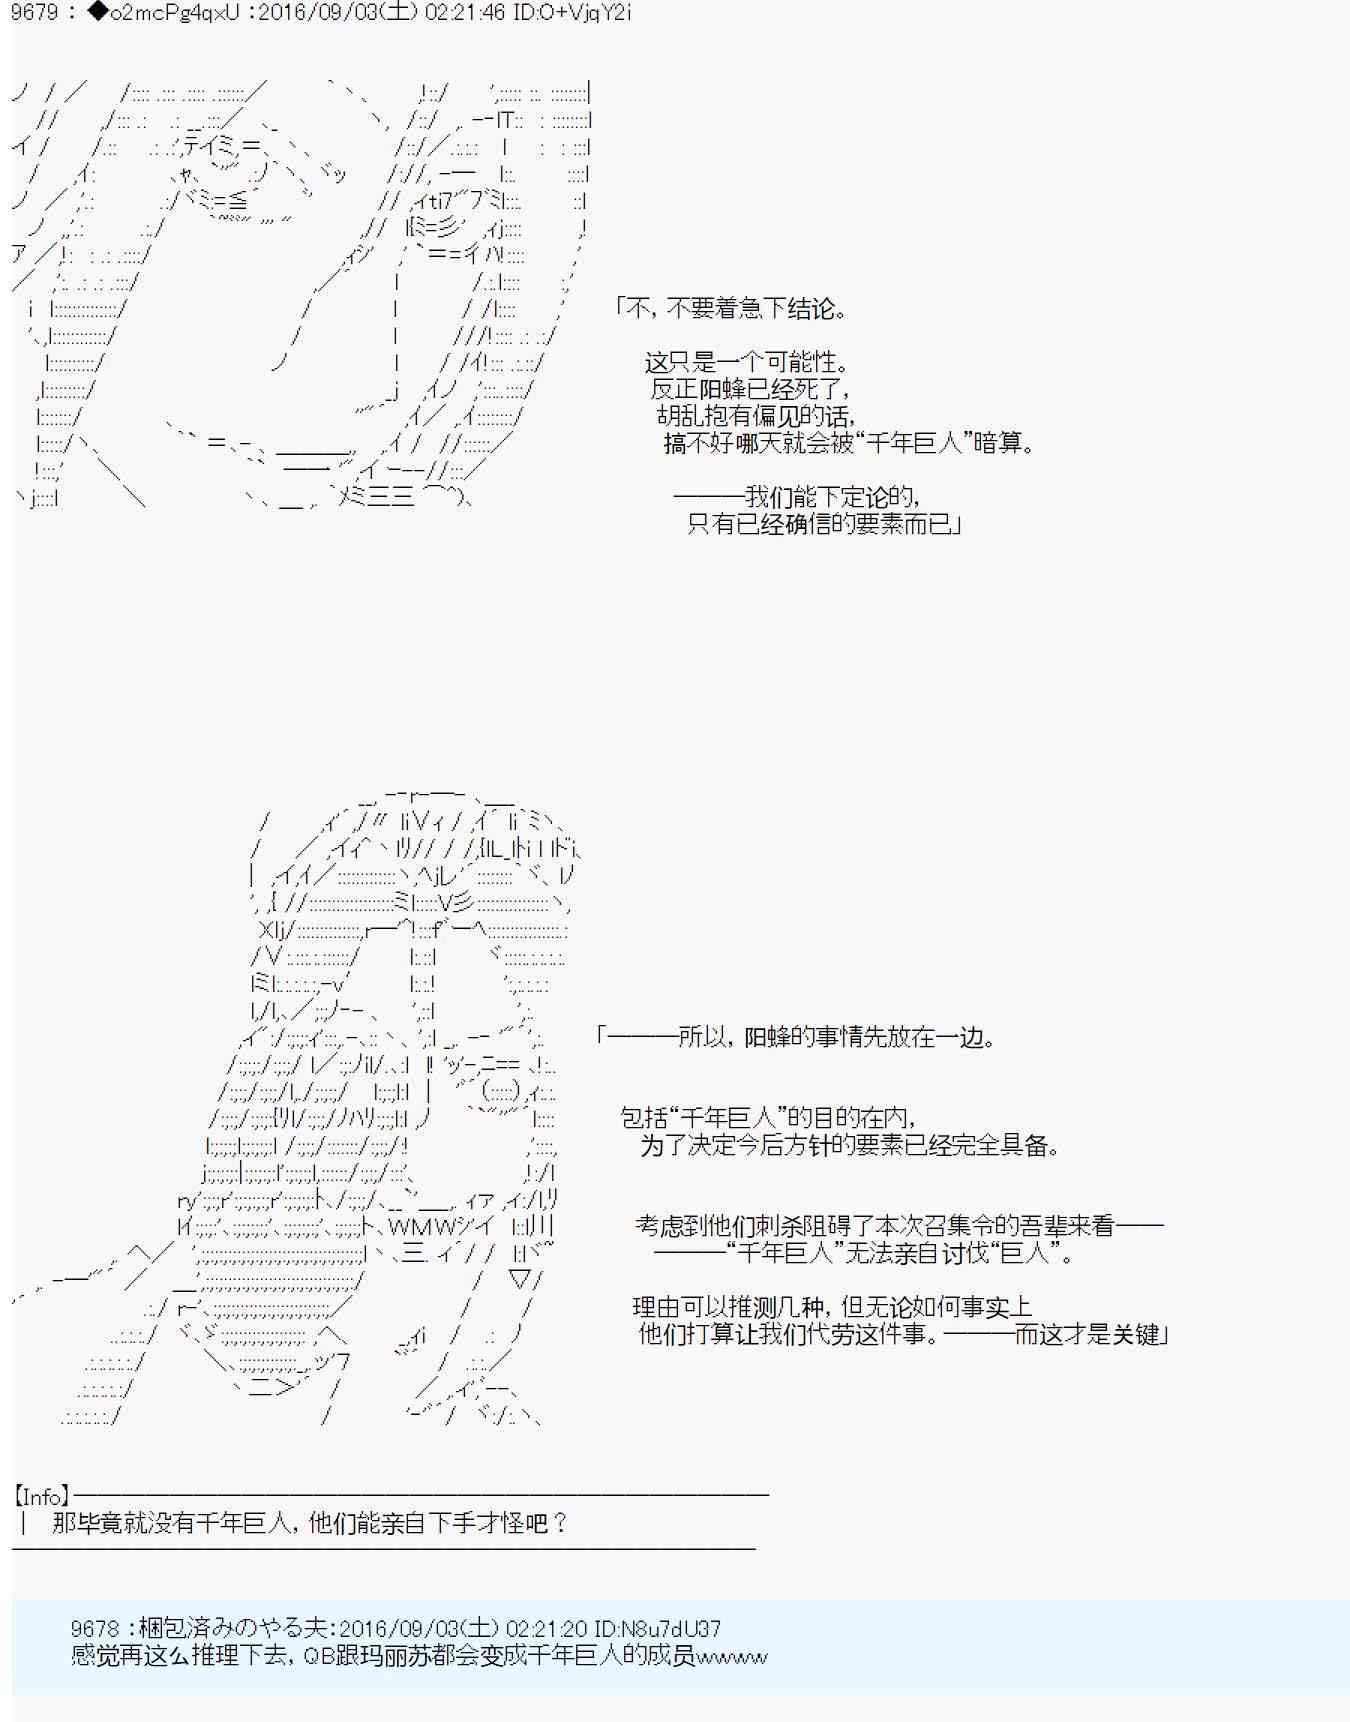 9679 : ◆o2mcPg4qxU :2016/09/03(土) 02:21:46 ID:O+VjqY2i
「不，不要着急下结论。
这只是一个可能性。
反正阳蜂已经死了，
胡乱抱有偏见的话，
搞不好哪天就会被“千年巨人”暗算。
―――我们能下定论的，
只有已经确信的要素而已」
「―――所以，阳蜂的事情先放在一边。
包括“千年巨人”的目的在内，
为了决定今后方针的要素已经完全具备。
考虑到他们刺杀阻碍了本次召集令的吾辈来看――
―――“千年巨人”无法亲自讨伐“巨人”。
理由可以推测几种，但无论如何事实上
他们打算让我们代劳这件事。―――而这才是关键」
【Info】
｜ 那毕竟就没有千年巨人，他们能亲自下手才怪吧？
9678 :梱包済みのやる夫:2016/09/03(土) 02:21:20 ID:N8u7dU37
感觉再这么推理下去，QB跟玛丽苏都会变成千年巨人的成员wwww